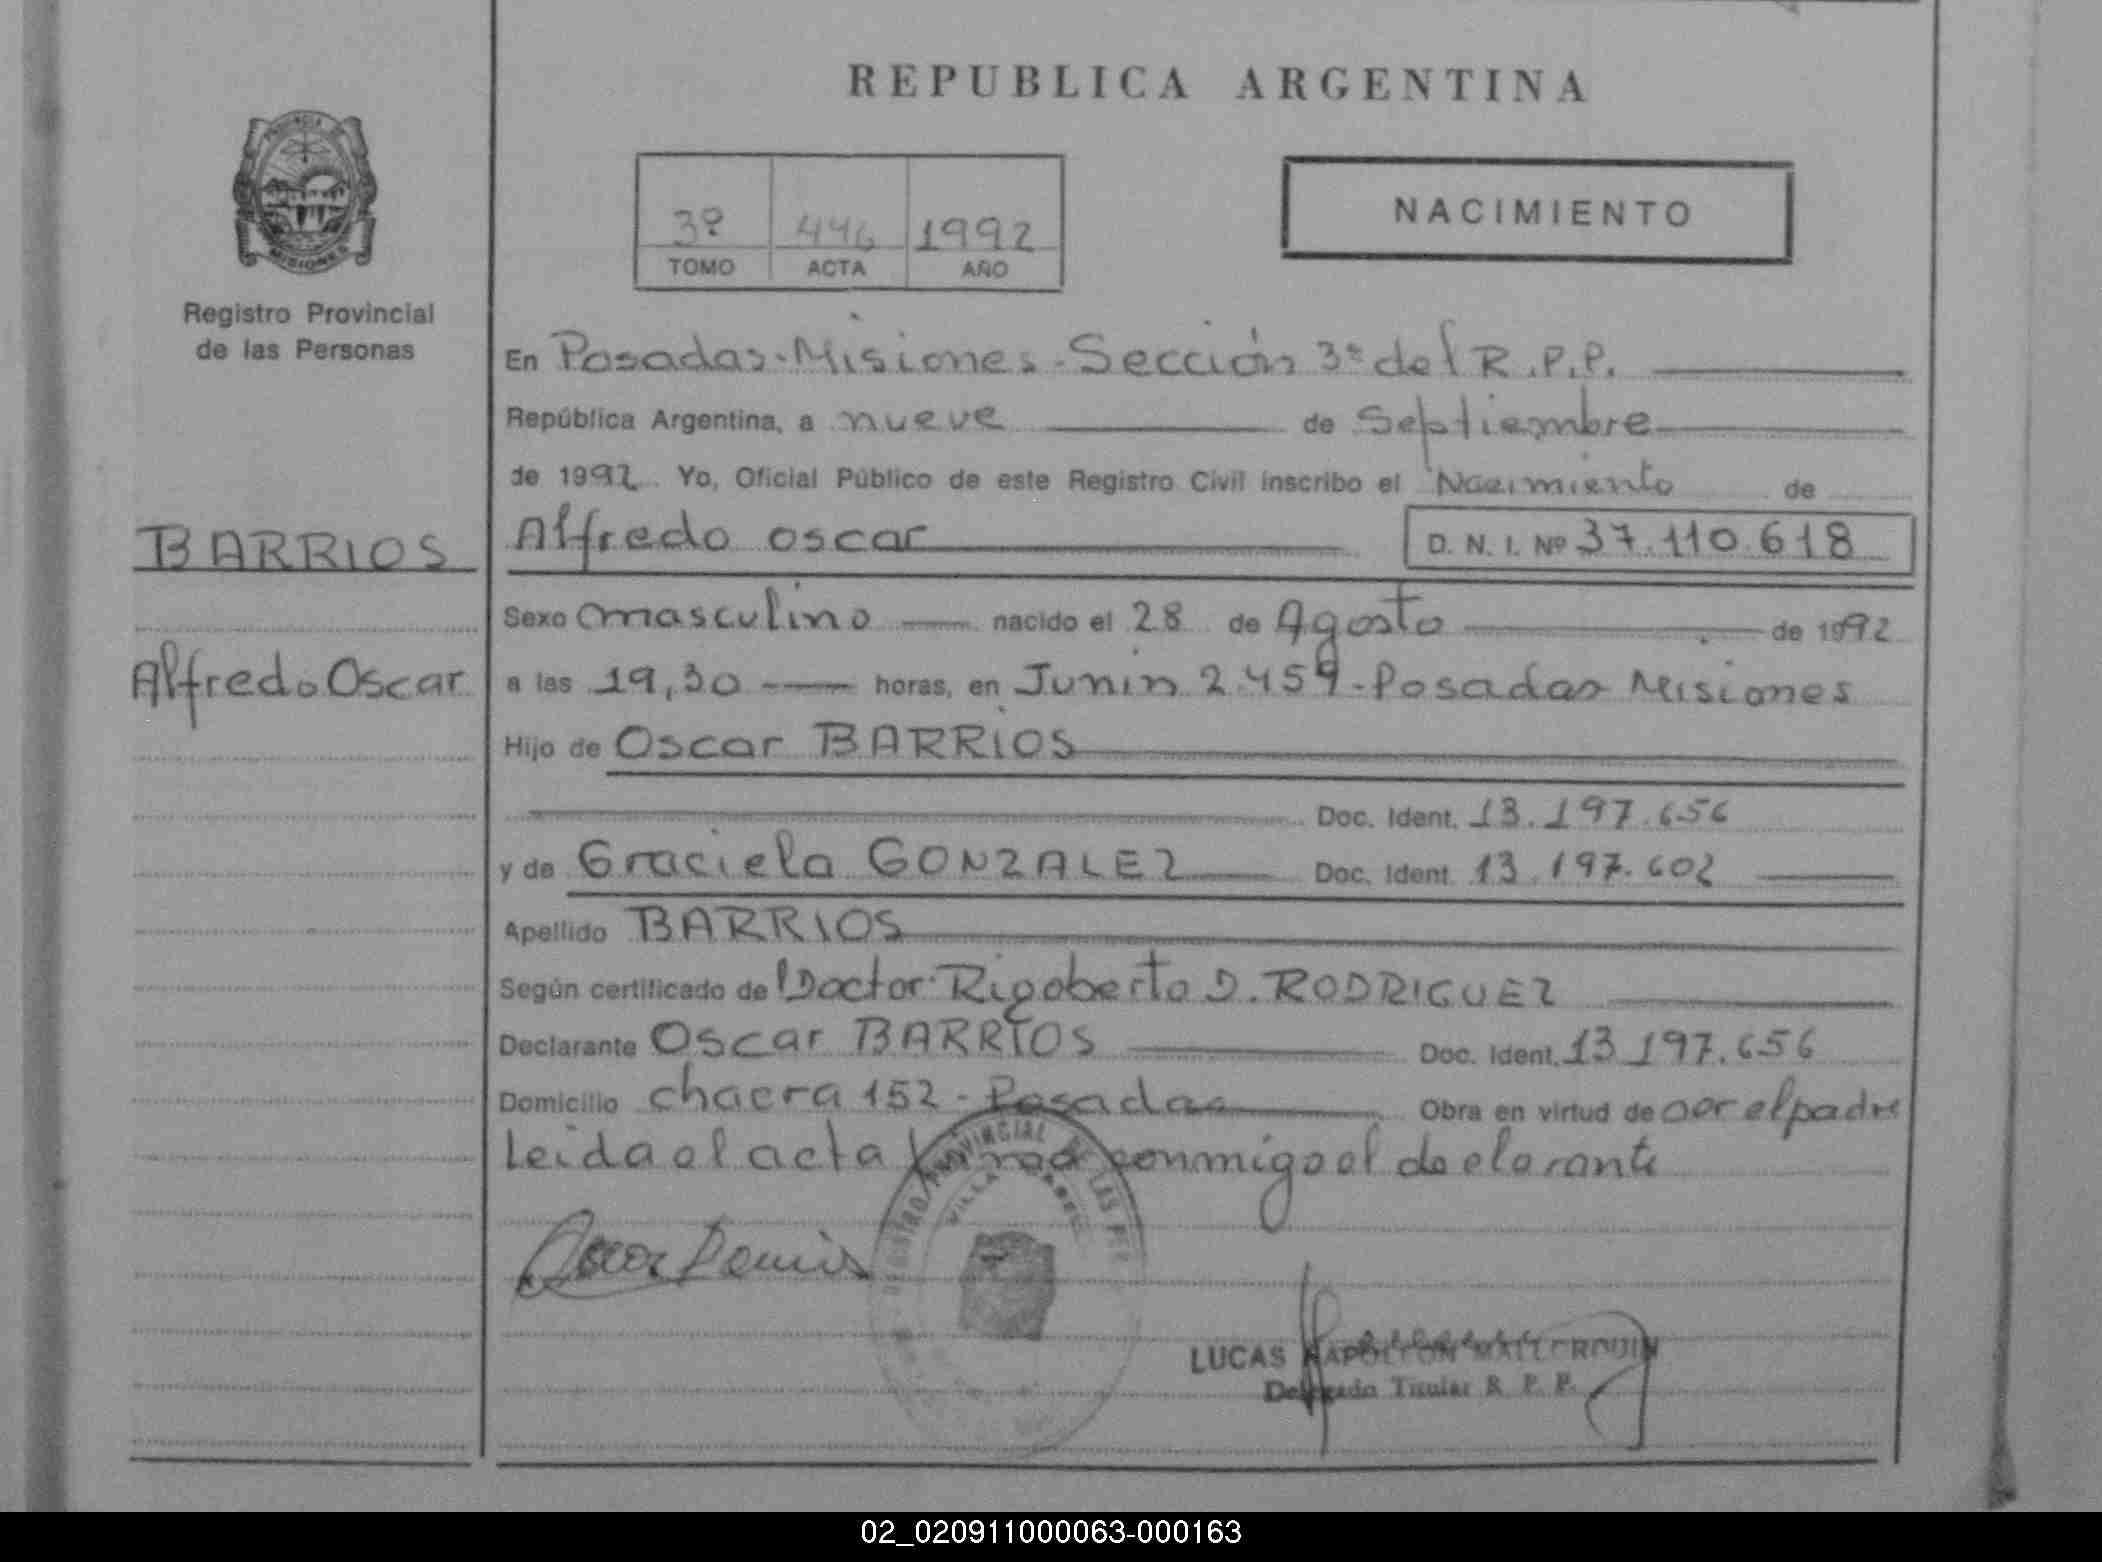 REPUBLICA ARGENTINA
PROVINCIA DE
MISIONES
Registro Provincial
de las Personas
3º 446 1992
TOMO ACTA AÑO
NACIMIENTO
En Posadas-Misiones-Sección 3ª del R.P.P.
República Argentina, a nueve de Septiembre
de 1992 Yo, Oficial Público de este Registro Civil inscribo el Nacimiento de
BARRIOS
Alfredo Oscar D. N. I. Nº 37.110.618
Sexo masculino nacido el 28 de Agosto de 1992
Alfredo Oscar
a las 19,30 horas, en Junín 2.459-Posadas Misiones
Hijo de Oscar BARRIOS
Doc. Ident. 13.197.656
y de Graciela GONZALEZ Doc. Ident. 13.197.602
Apellido BARRIOS
Según certificado de l Doctor Rigoberto D. RODRIGUEZ
Declarante Oscar BARRIOS Doc. Ident. 13197.656
Domicilio chacra 152-Posadas Obra en virtud de ser el padre
Leida el acta firma conmigo el declarante
REGISTRO PROVINCIAL DE LAS
VILLA
Oscar
LUCAS NAPOLEON
Delegado Titular R. P. P.
02_020911000063-000163